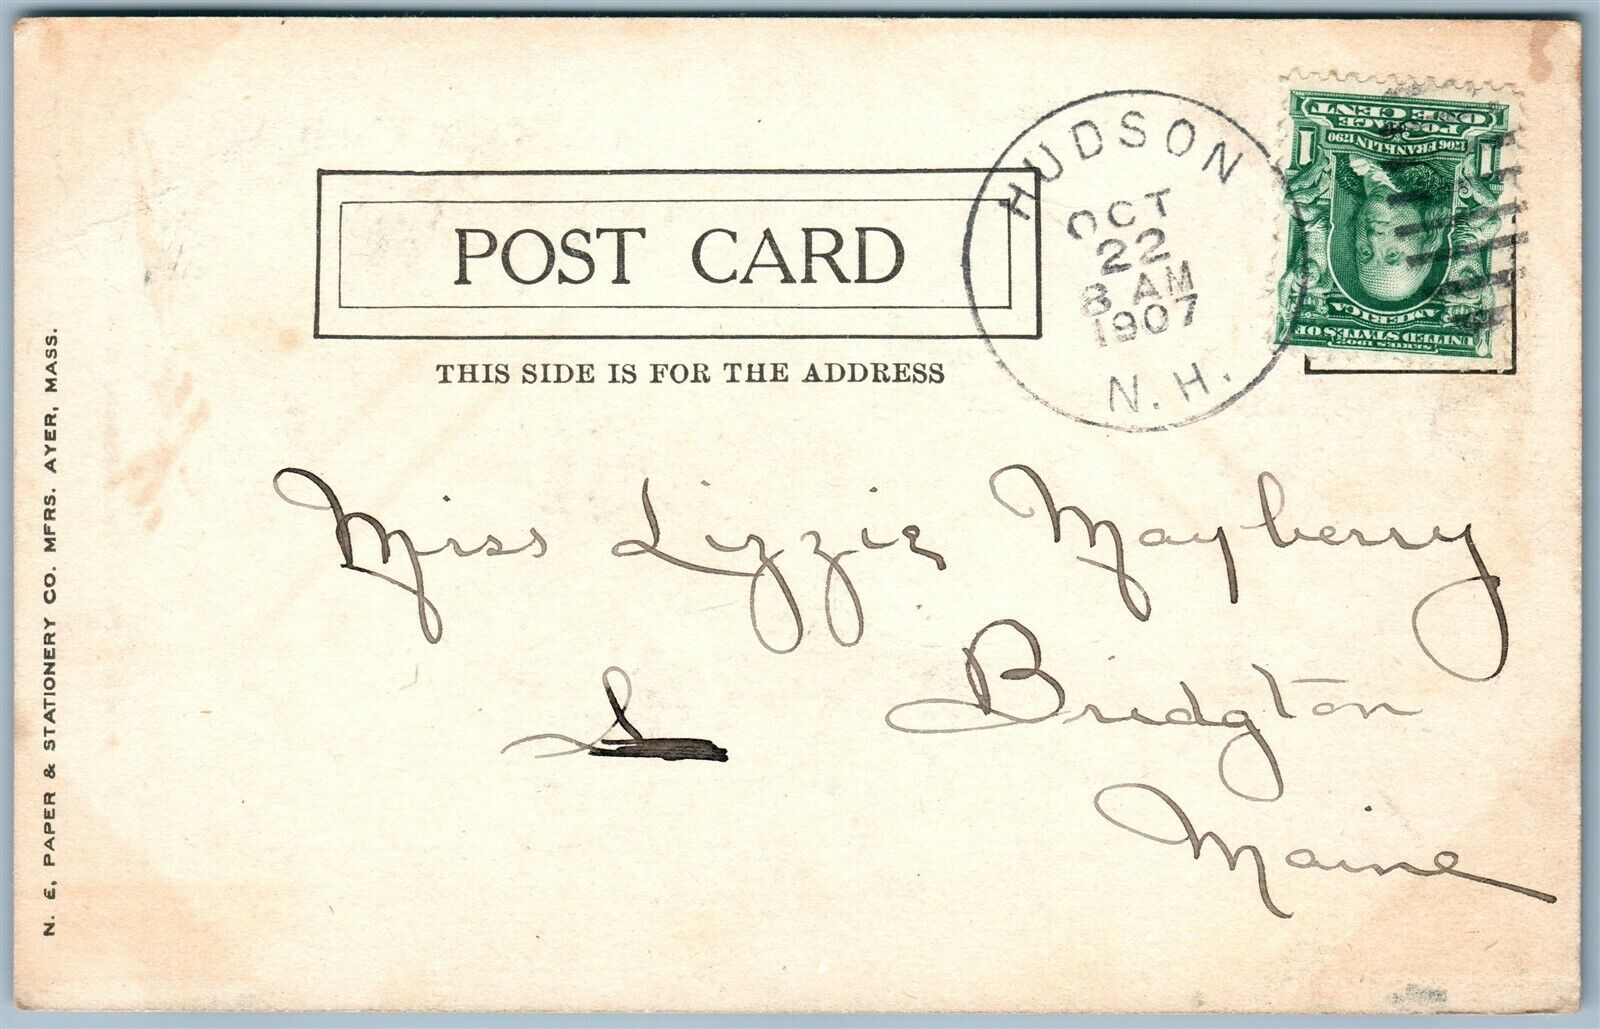 HUDSON
OCT
22
8 AM
1907
N.H.
ONE CENT
POSTAGE
1706 FRANKLIN 1790
1 1
SERIES 1902
UNITED STATES OF
AMERICA
POST CARD
THIS SIDE IS FOR THE ADDRESS
Miss Lizzie Mayberry
S
Bridgton
Maine
N. E. PAPER & STATIONERY CO. MFRS. AYER, MASS.